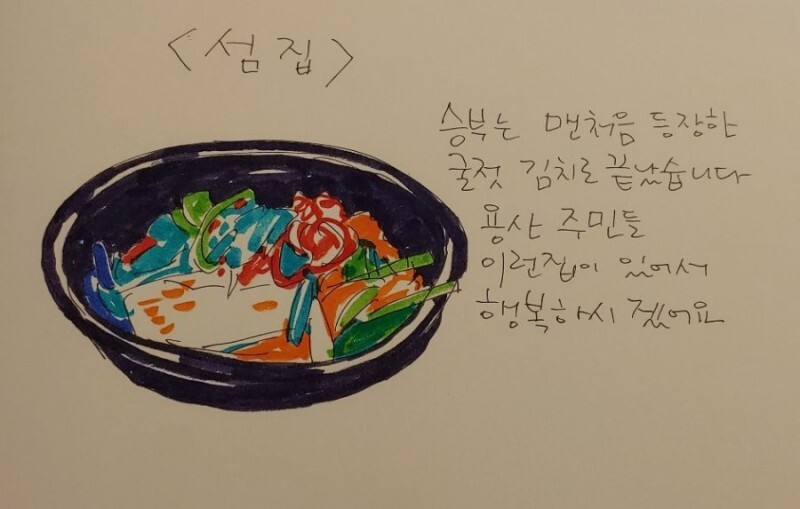 <섬집>
승부는 맨처음 등장한
굴젓 김치로 끝났습니다
용산 주민들
이런집이 있어서
행복하시 겠어요